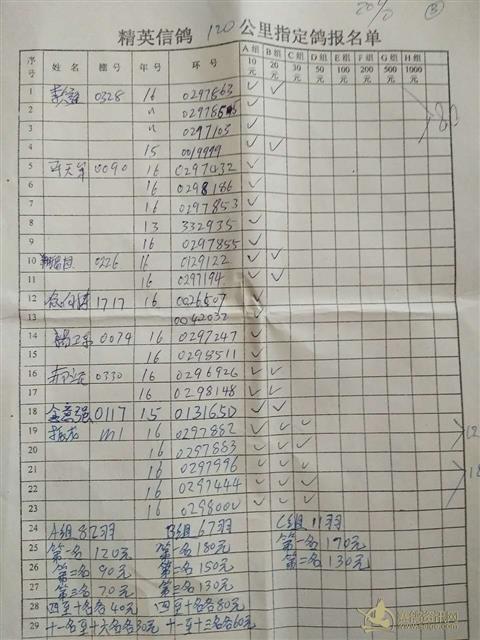 20%
③
精英信鸽 120 公里指定鸽报名单
序号 姓名 棚号 年号 环号 A组10元 B组20元 C组30元 D组50元 E组100元 F组200元 G组500元 H组1000元
1 0328 16 0297863 ✓ ✓
2 〃 ✓
3 〃 0297103 ✓
4 15 0019999 ✓ ✓
5 0090 16 0297432 ✓
6 16 0298186 ✓
7 16 0297853 ✓
8 13 332935 ✓
9 16 0297855 ✓
10 0226 16 0129122 ✓ ✓
11 16 0297194 ✓ ✓
12 1717 16 0026507 ✓
13 0042032 ✓
14 0079 16 0297247 ✓
15 16 0298511 ✓
16 0330 16 0296926 ✓ ✓
17 16 0298148 ✓ ✓
18 0117 15 0131650 ✓ ✓
19 16 0297882 ✓ ✓ ✓
20 16 0297883 ✓ ✓ ✓
21 16 0297996 ✓ ✓ ✓
22 16 0297444 ✓ ✓ ✓
23 16 0298000 ✓ ✓ ✓
24 A组82羽 B组67羽 C组11羽
25 第一名120元 第一名180元 第一名170元
26 第二名90元 第二名150元 第二名130元
27 第三名70元 第三名130元
28 四至十名各40元 四至十名各80元
29 十一名至十六名各30元 十一至十三名各60元